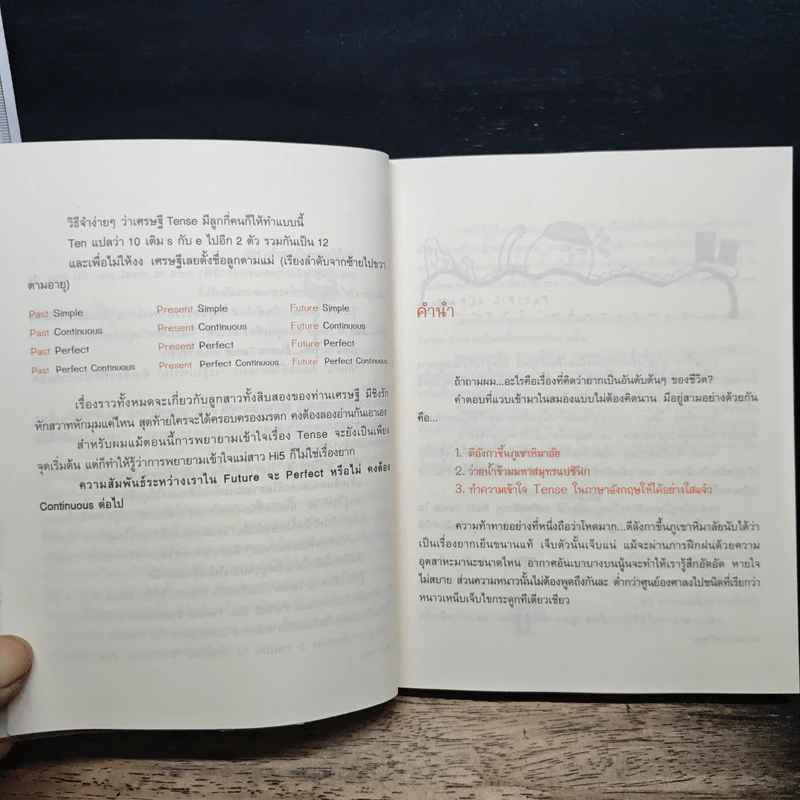 วิธีจำง่ายๆ ว่าเศรษฐี Tense มีลูกกี่คนก็ให้ทำแบบนี้
Ten แปลว่า 10 เติม s กับ e ไปอีก 2 ตัว รวมกันเป็น 12
และเพื่อไม่ให้งง เศรษฐีเลยตั้งชื่อลูกตามแม่ (เรียงลำดับจากซ้ายไปขวา
ตามอายุ)
Past Simple Present Simple Future Simple
Past Continuous Present Continuous Future Continuous
Past Perfect Present Perfect Future Perfect
Past Perfect Continuous Present Perfect Continuous Future Perfect Continuous
เรื่องราวทั้งหมดจะเกี่ยวกับลูกสาวทั้งสิบสองของท่านเศรษฐี มีชิงรัก
หักสวาทหักมุมแค่ไหน สุดท้ายใครจะได้ครอบครองมรดก คงต้องลองอ่านกันเอาเอง
สำหรับผมแม้ตอนนี้การพยายามเข้าใจเรื่อง Tense จะยังเป็นเพียง
จุดเริ่มต้น แต่ก็ทำให้รู้ว่าการพยายามเข้าใจแม่สาว Hi5 ก็ไม่ใช่เรื่องยาก
ความสัมพันธ์ระหว่างเราใน Future จะ Perfect หรือไม่ คงต้อง
Continuous ต่อไป
คำนำ
ถ้าถามผม...อะไรคือเรื่องที่คิดว่ายากเป็นอันดับต้นๆ ของชีวิต?
คำตอบที่แวบเข้ามาในสมองแบบไม่ต้องคิดนาน มีอยู่สามอย่างด้วยกัน
คือ...
1. ตีลังกาขึ้นภูเขาหิมาลัย
2. ว่ายน้ำข้ามมหาสมุทรแปซิฟิก
3. ทำความเข้าใจ Tense ในภาษาอังกฤษให้ได้อย่างใสแจ๋ว
ความท้าทายอย่างที่หนึ่งถือว่าโหดมาก...ตีลังกาขึ้นภูเขาหิมาลัยนับได้ว่า
เป็นเรื่องยากเย็นขนานแท้ เจ็บตัวนั้นเจ็บแน่ แม้จะผ่านการฝึกฝนด้วยความ
อุตสาหะมานะขนาดไหน อากาศอันเบาบางบนนู้นจะทำให้เรารู้สึกอึดอัด หายใจ
ไม่สบาย ส่วนความหนาวนั้นไม่ต้องพูดถึงกันละ ต่ำกว่าศูนย์องศาลงไปชนิดที่เรียกว่า
หนาวเหน็บเจ็บไขกระดูกทีเดียวเชียว